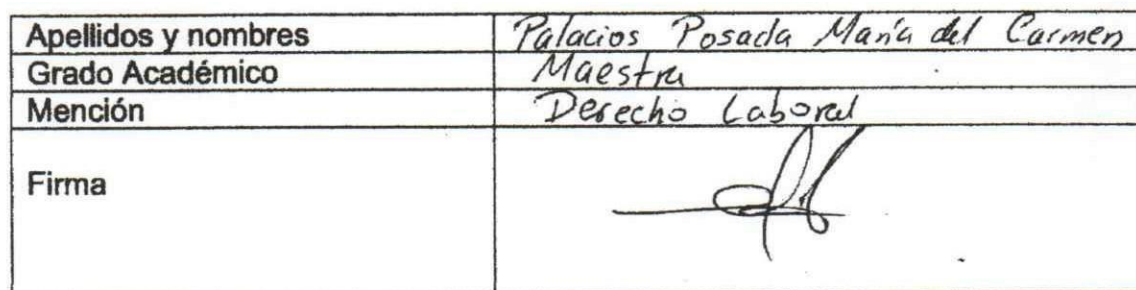 Apellidos y nombres Palacios Posada María del Carmen
Grado Académico Maestra
Mención Derecho Laboral
Firma